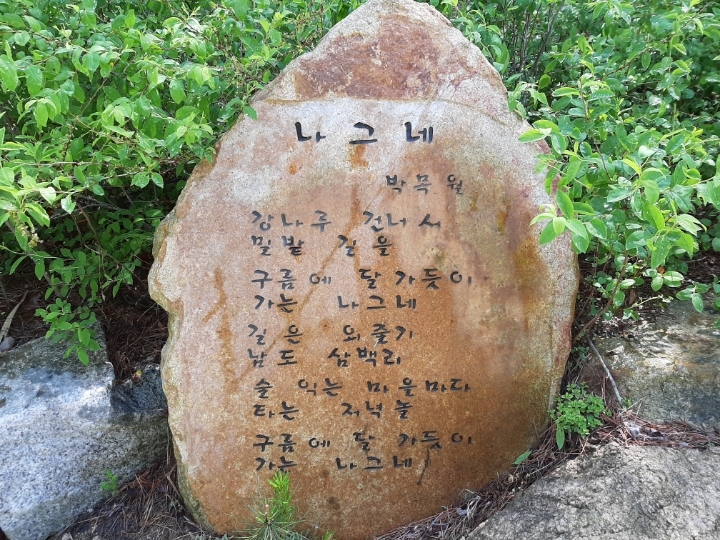 나그네
박목월
강나루 건너서
밀밭 길을
구름에 달 가듯이
가는 나그네
길은 외줄기
남도 삼백리
술 익는 마을마다
타는 저녁놀
구름에 달 가듯이
가는 나그네